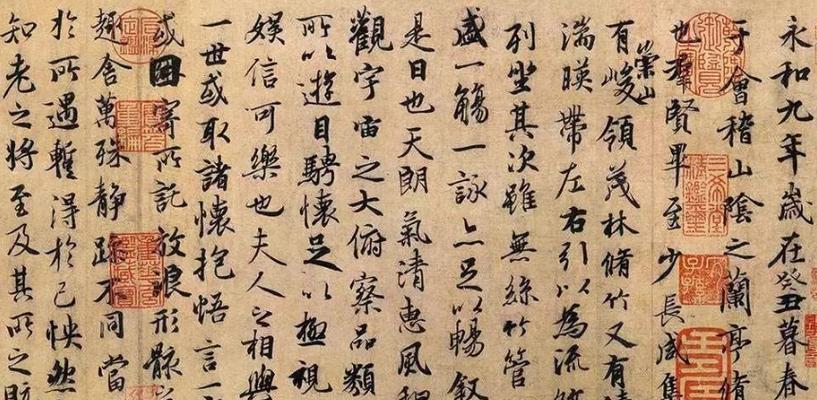 永和九年歲在癸丑暮春
于會稽山陰之蘭亭脩
也羣賢畢至少長咸集
有崇山峻領茂林脩竹又有清
湍暎帶左右引以為流
列坐其次雖無絲竹管
盛一觴一詠亦足以暢敘
是日也天朗氣清惠風和
觀宇宙之大俯察品類
所以遊目騁懷足以極視
娛信可樂也夫人之相與
一世或取諸懷抱悟言一
或因寄所託放浪形骸
趣舍萬殊靜躁不同當
於所遇暫得於己怏然
知老之將至及其所之既